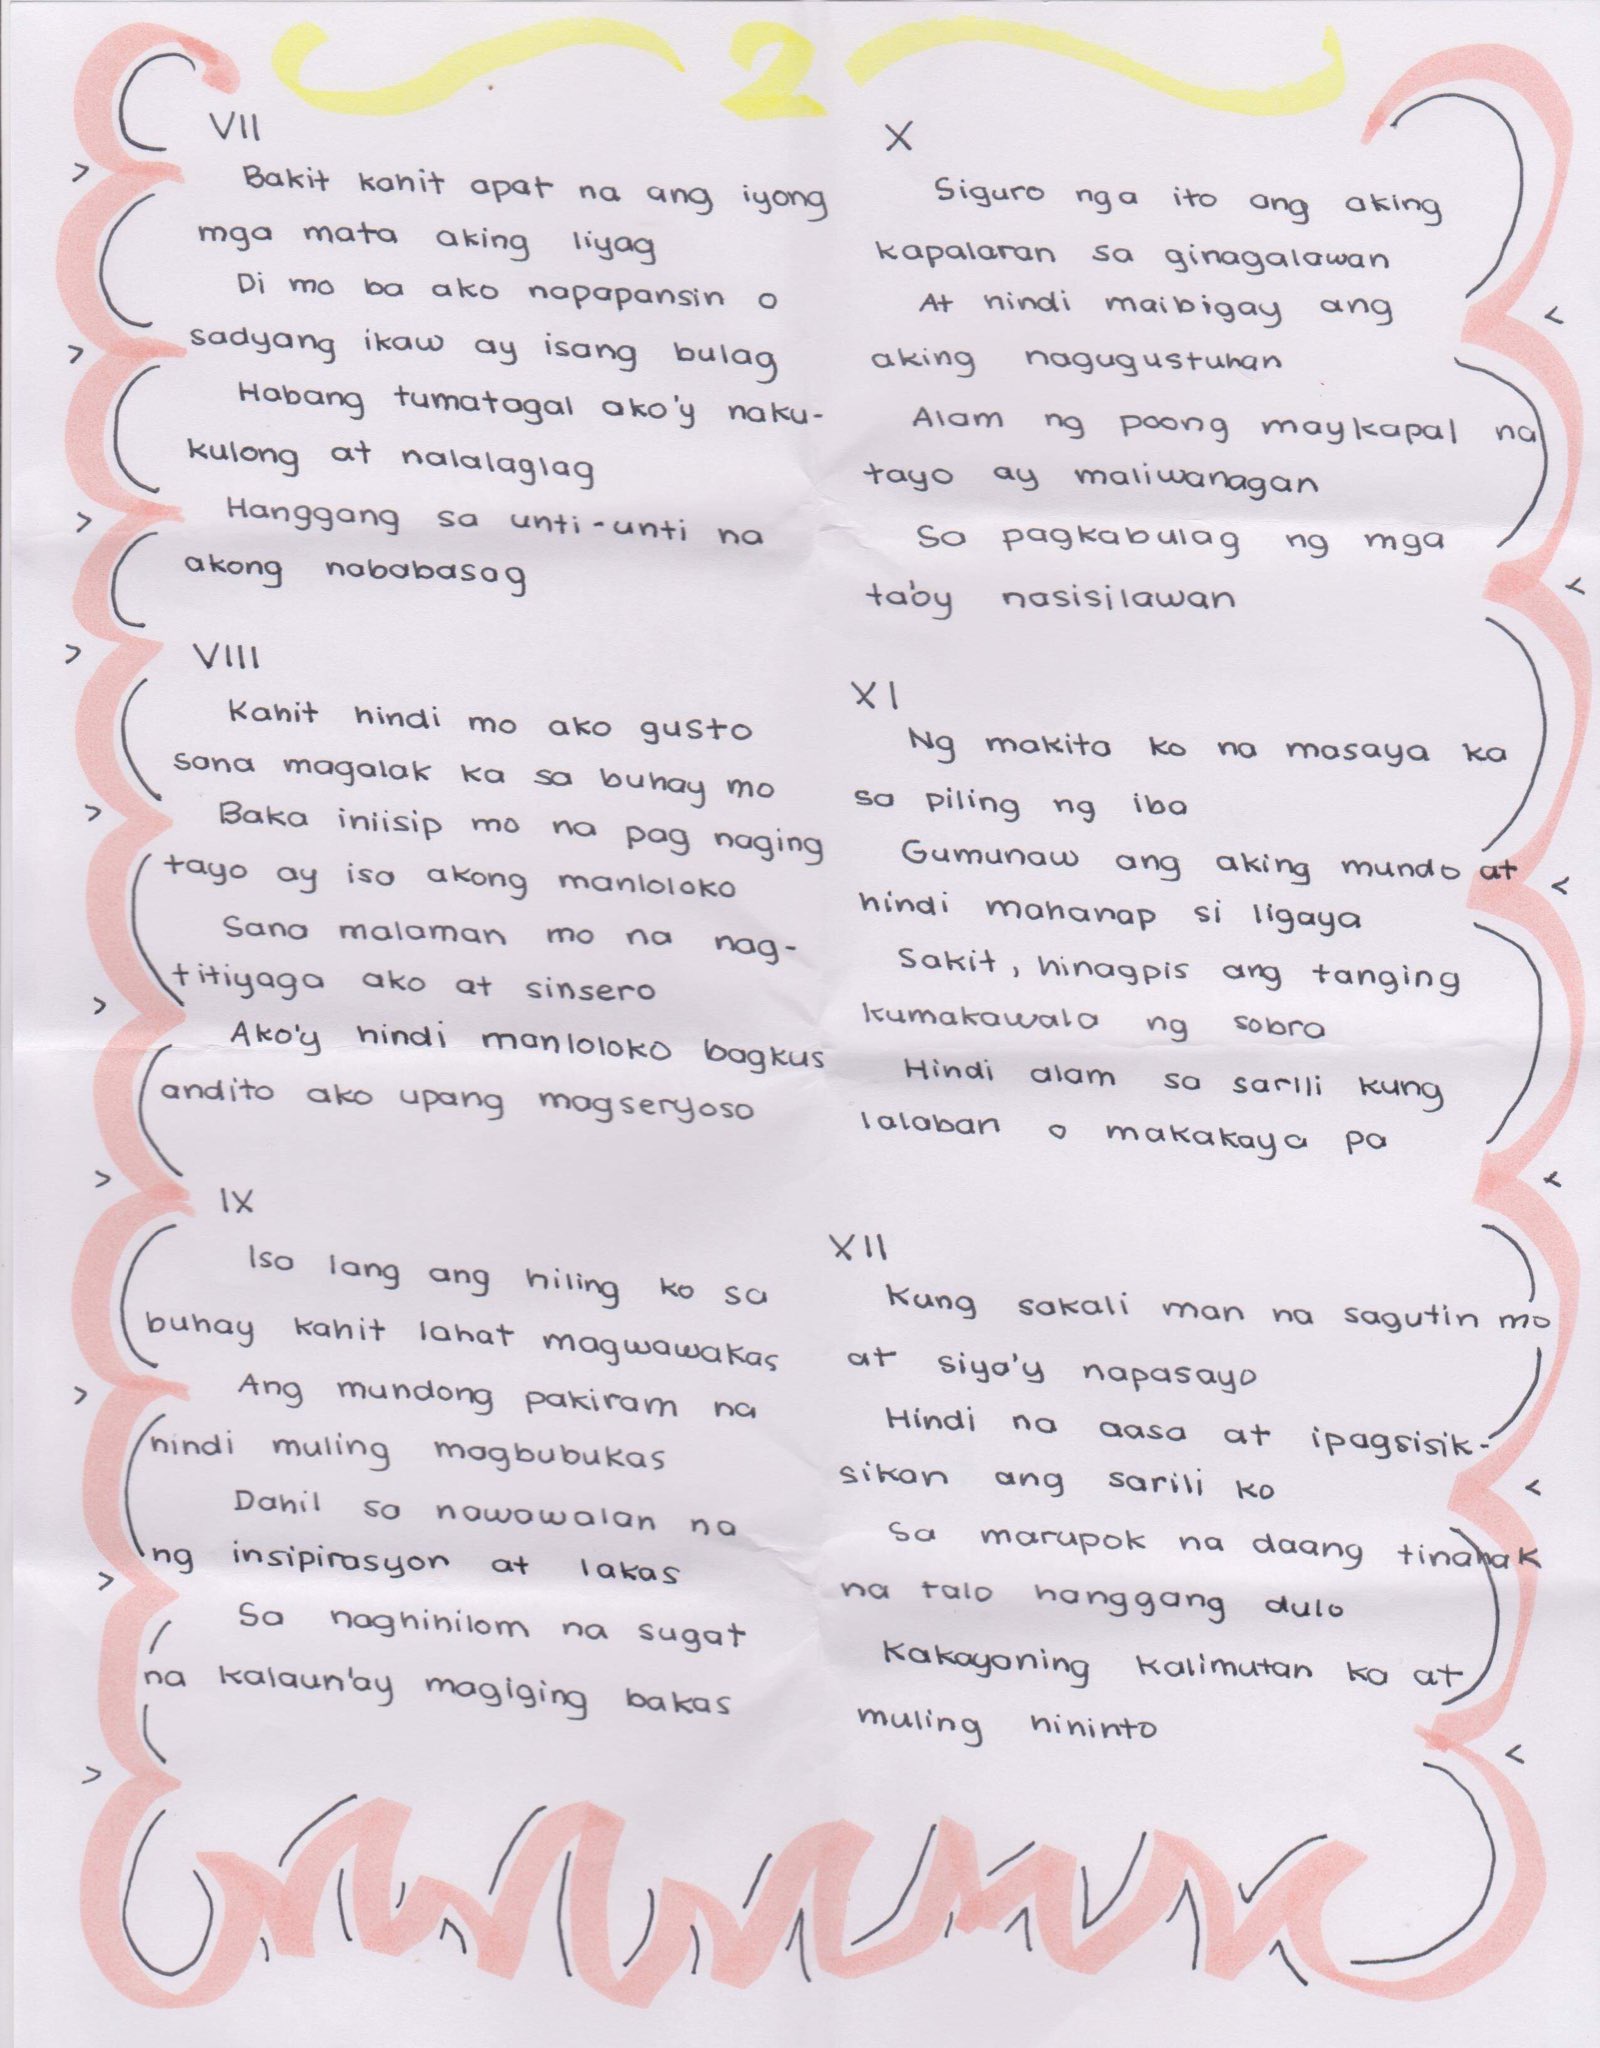 2
VII
Bakit kahit apat na ang iyong
mga mata aking liyag
Di mo ba ako napapansin o
sadyang ikaw ay isang bulag
Habang tumatagal ako'y naku-
kulong at nalalaglag
Hanggang sa unti-unti na
akong nababasag
VIII
Kahit hindi mo ako gusto
sana magalak ka sa buhay mo
Baka iniisip mo na pag naging
tayo ay isa akong manloloko
Sana malaman mo na nag-
titiyaga ako at sinsero
Ako'y hindi manloloko bagkus
andito ako upang magseryoso
IX
Isa lang ang hiling ko sa
buhay kahit lahat magwawakas
Ang mundong pakiram na
hindi muling magbubukas
Dahil sa nawawalan na
ng insipirasyon at lakas
Sa naghihilom na sugat
na kalaun'ay magiging bakas
X
Siguro nga ito ang aking
kapalaran sa ginagalawan
At hindi maibigay ang
aking nagugustuhan
Alam ng poong maykapal na
tayo ay maliwanagan
Sa pagkabulag ng mga
ta'oy nasisilawan
XI
Ng makita ko na masaya ka
sa piling ng iba
Gumunaw ang aking mundo at
hindi mahanap si ligaya
Sakit, hinagpis ang tanging
kumakawala ng sobra
Hindi alam sa sarili kung
lalaban o makakaya pa
XII
Kung sakali man na sagutin mo
at siya'y napasayo
Hindi na aasa at ipagsisik-
sikan ang sarili ko
Sa marupok na daang tinahak
na talo hanggang dulo
Kakayaning kalimutan ka at
muling hihinto